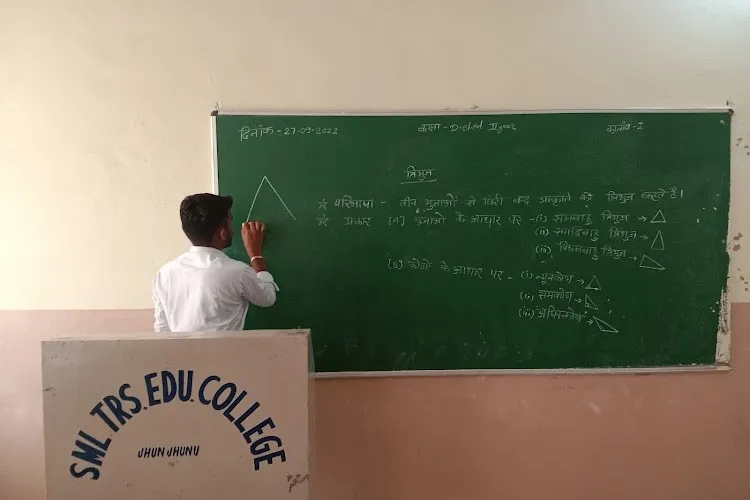 दिनांक - 27-09-2022 कक्षा - D.el.ed IIyear कालांश - I
त्रिभुज
* परिभाषा - तीन भुजाओं से घिरी बन्द आकृति को त्रिभुज कहते है।
* प्रकार (A) भुजाओं के आधार पर - (i) समबाहु त्रिभुज →
(ii) समद्विबाहु त्रिभुज →
(iii) विषमबाहु त्रिभुज →
(B) कोणों के आधार पर - (i) न्यूनकोण →
(ii) समकोण →
(iii) अधिककोण →
SML TRS. EDU. COLLEGE
JHUNJHUNU